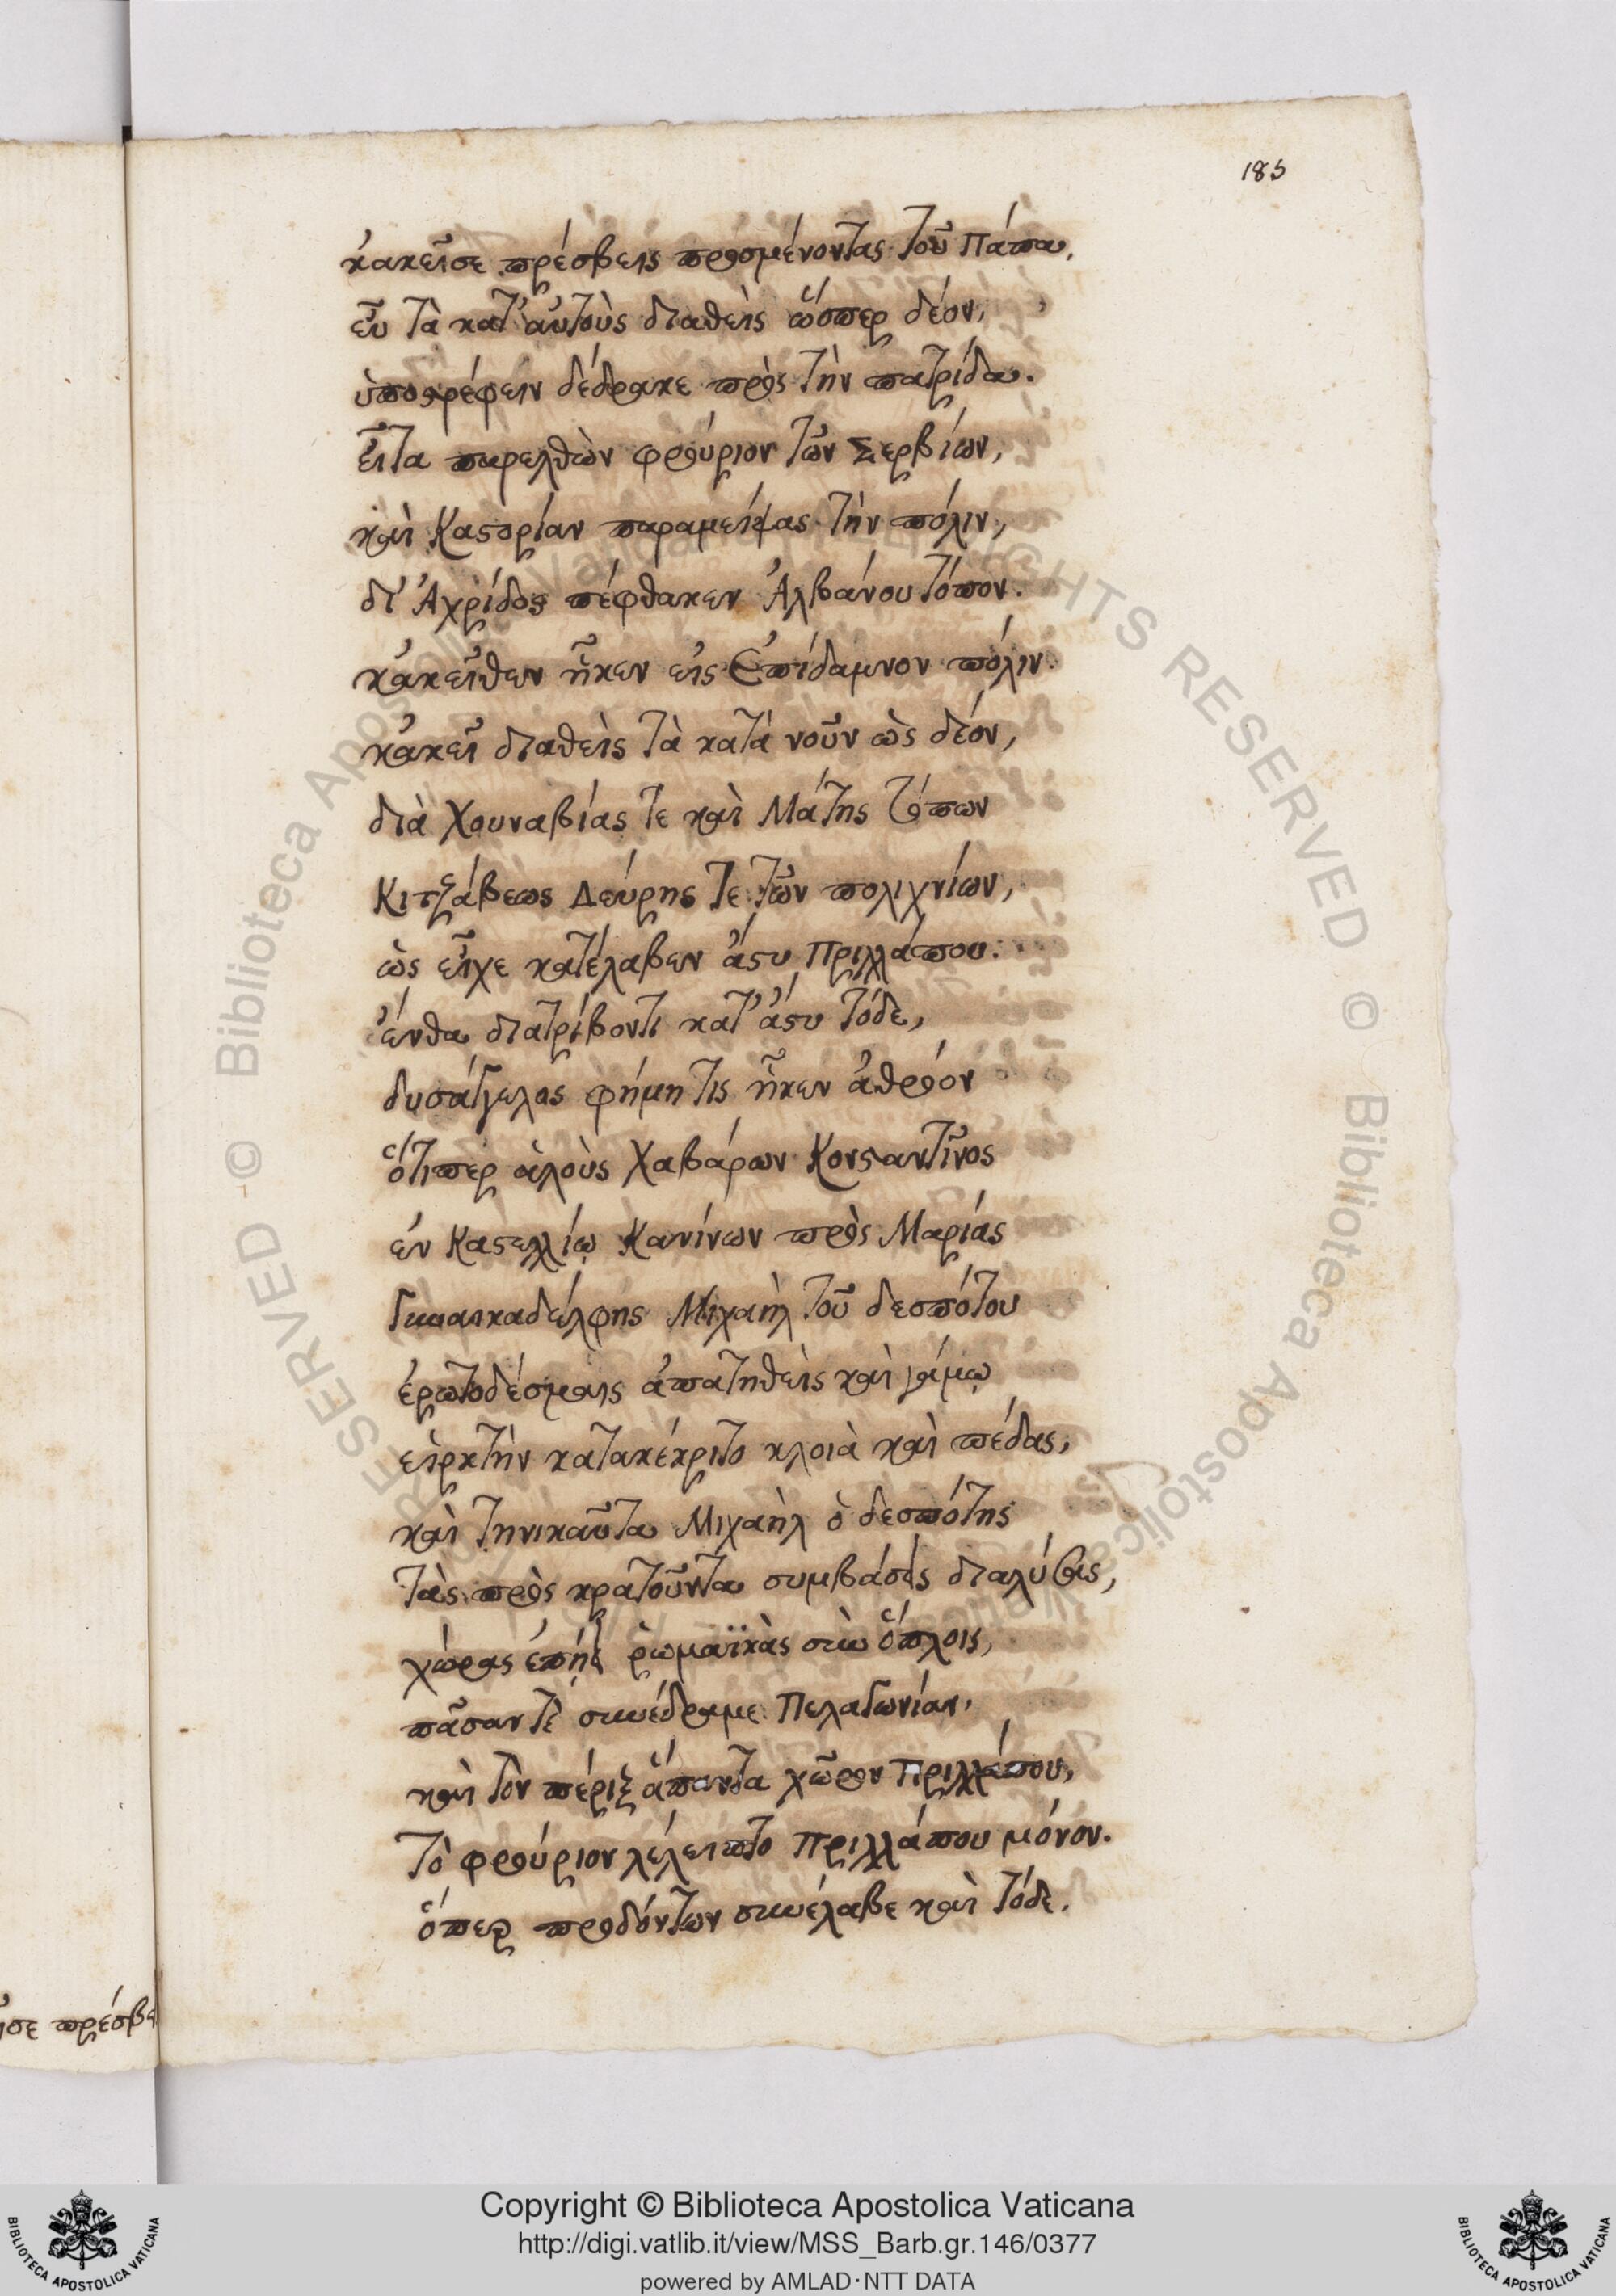 185
κἀκεῖσε πρέσβεις προσμένοντας τοῦ Πάπα,
εὖ τὰ κατ' αὐτοὺς διαθεὶς ὥσπερ δέον,
ὑποστρέφειν δέδρακε πρὸς τὴν πατρίδα.
εἶτα παρελθὼν φρούριον τῶν Σερβίων,
καὶ Καστορίαν παραμείψας τὴν πόλιν,
δι' Ἀχρίδος πέφθακεν Ἀλβάνου τόπον.
κἀκεῖθεν ἧκεν εἰς Ἐπίδαμνον πόλιν.
κἀκεῖ διαθεὶς τὰ κατὰ νοῦν ὡς δέον,
διὰ Χουναβίας τε καὶ Μάτης τόπων
Κιτζάβεως Δεύρης τε τῶν πολιχνίων,
ὡς εἶχε κατέλαβεν ἄστυ Πριλλάπου.
ἔνθα διατρίβοντι κατ' ἄστυ τόδε,
δυσάγγελος φήμη τις ἧκεν ἀθρόον
ὅτιπερ ἁλοὺς Χαβάρων Κονσταντῖνος
ἐν Καστελλίῳ Κανίνων πρὸς Μαρίας
Μιχαὴλ τοῦ δεσπότου
ἐρωτοδέσμαις ἀπατηθεὶς καὶ γάμῳ
εἱρκτὴν κατακέκριτο κλοιὰ καὶ πέδας,
καὶ τηνικαῦτα Μιχαὴλ ὁ δεσπότης
τὰς πρὸς κρατοῦντα συμβάσεις διαλύσας,
χώρας ἐπῄει ῥωμαϊκὰς σὺν ὅπλοις,
πᾶσαν τὲ συνέδραμε Πελαγονίαν,
καὶ τὸν πέριξ ἅπαντα χῶρον Πριλλάπου,
τὸ φρούριον λέλειπτο Πριλλάπου μόνον.
ὅπερ προδόντων συνέλαβε καὶ τόδε.
ῖσε πρέσβε
Copyright © Biblioteca Apostolica Vaticana
http://digi.vatlib.it/view/MSS_Barb.gr.146/0377
powered by AMLAD·NTT DATA
BIBLIOTECA APOSTOLICA VATICANA
BIBLIOTECA APOSTOLICA VATICANA